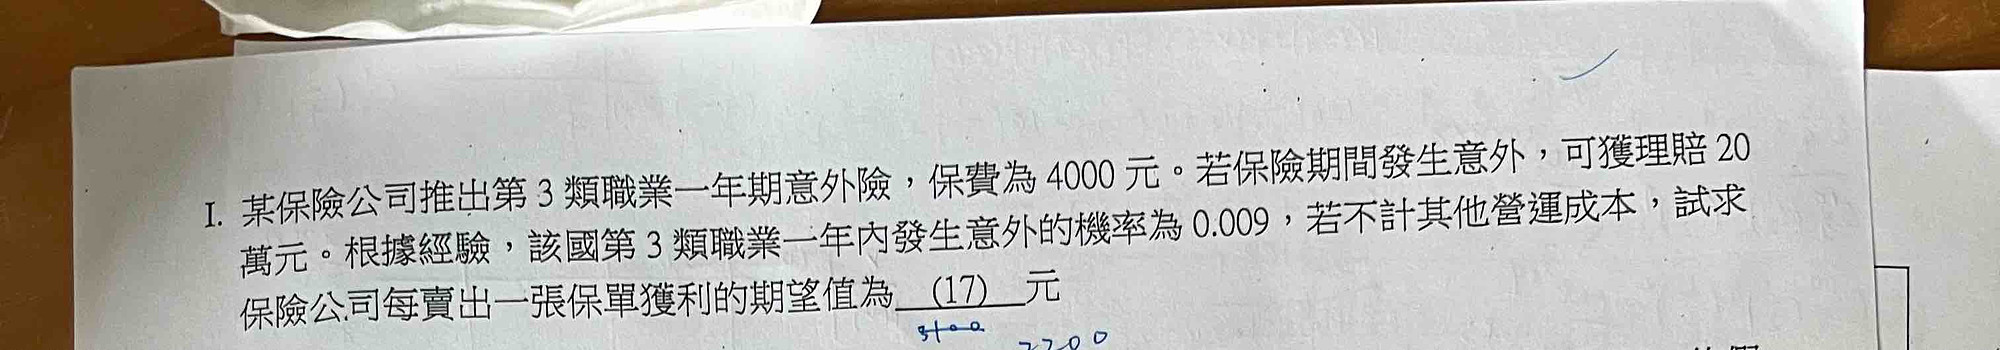 I. 某保險公司推出第 3 類職業一年期意外險，保費為 4000 元。若保險期間發生意外，可獲理賠 20
萬元。根據經驗，該國第 3 類職業一年內發生意外的機率為 0.009，若不計其他營運成本，試求
保險公司每賣出一張保單獲利的期望值為 (17) 元
3100
2200